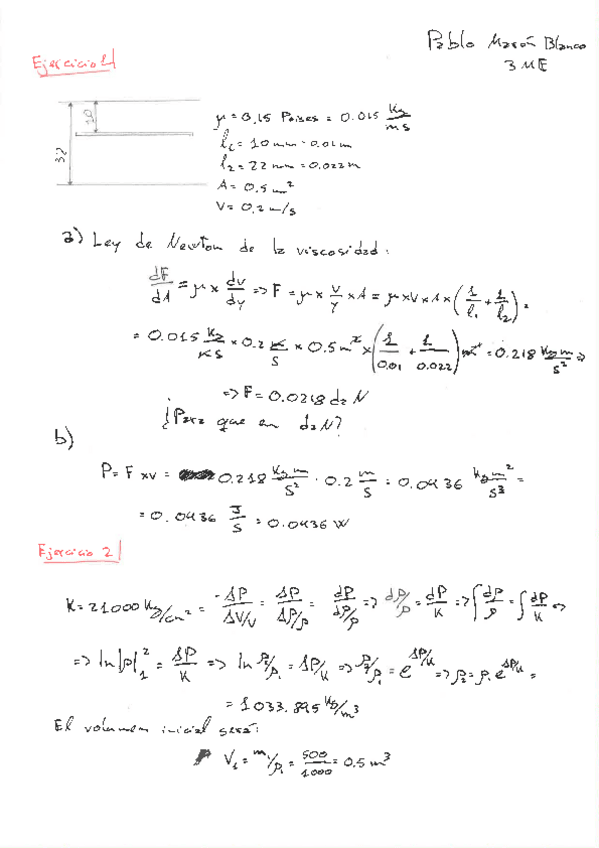 Pablo Marón Blanco
3 ME
Ejercicio 1
10
32
μ = 0,15 Poises = 0.015 kg/ms
l₁ = 10 mm = 0.01 m
l₂ = 22 mm = 0.022 m
A = 0,5 m²
V = 0,2 m/s
a) Ley de Newton de la viscosidad:
dF/dA = μ × dv/dy => F = μ × v/y × A = μ × V × A × (1/l₁ + 1/l₂) =
= 0.015 kg/ms × 0.2 m/s × 0.5 m² × (1/0.01 + 1/0.022) m⁻¹ = 0.218 kg m/s² =>
=> F = 0.0218 da N
¿Para que en daN?
b)
P = F × v = 0.218 kg m/s² · 0.2 m/s = 0.0436 kg m²/s³ =
= 0.0436 J/s = 0.0436 W
Ejercicio 2
K = 21000 kg/cm² = -ΔP/ΔV/V = ΔP/Δρ/ρ = dP/dρ/ρ => dρ/ρ = dP/K => ∫dρ/ρ = ∫dP/K =>
=> ln|ρ|₁² = ΔP/K => ln ρ₂/ρ₁ = ΔP/K => ρ₂/ρ₁ = e^ΔP/K => ρ₂ = ρ₁ e^ΔP/K =
= 1033.895 kg/m³
El volumen inicial será:
V₁ = m/ρ₁ = 500/1000 = 0.5 m³